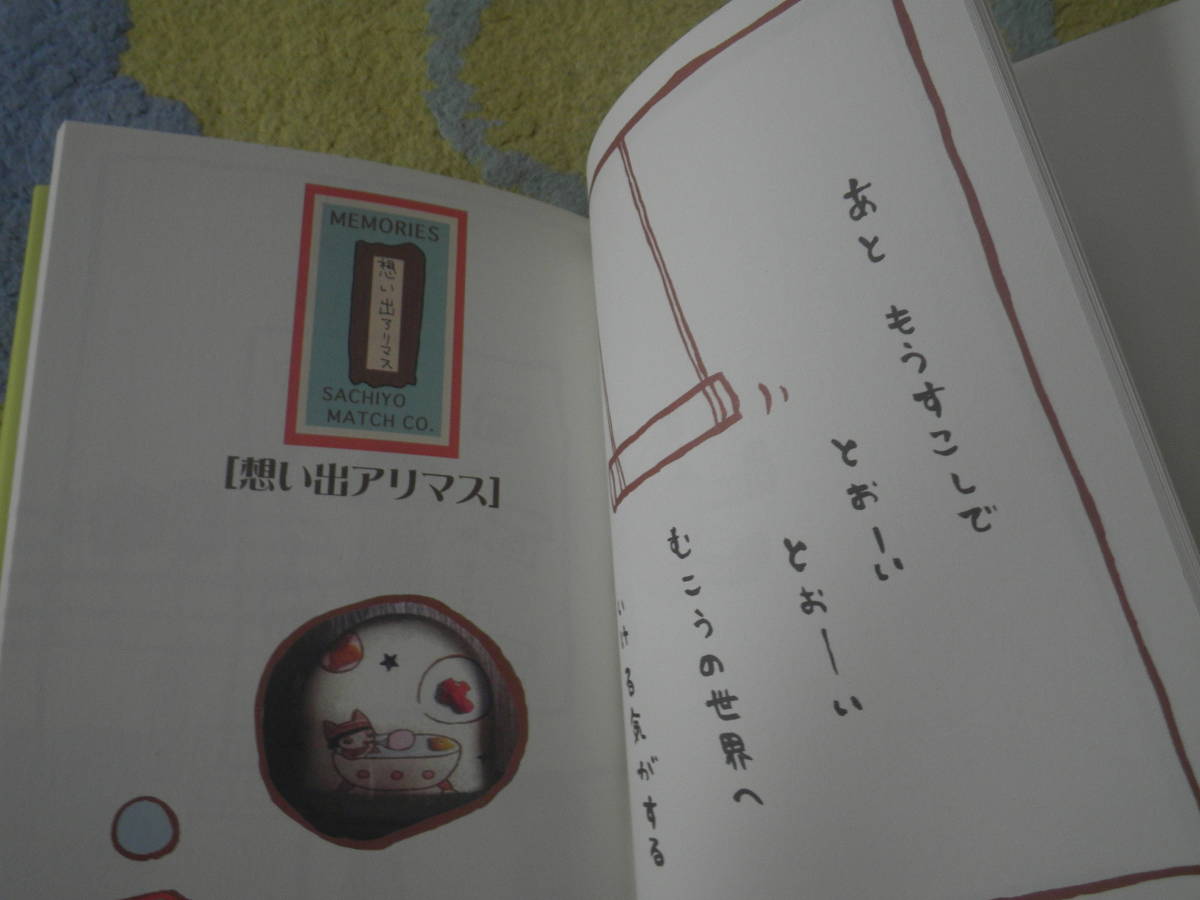 MEMORIES
想い出アリマス
SACHIYO
MATCH CO.
[想い出アリマス]
あと もうすこしで
とおーい
とおーい
むこうの世界へ
いける気がする